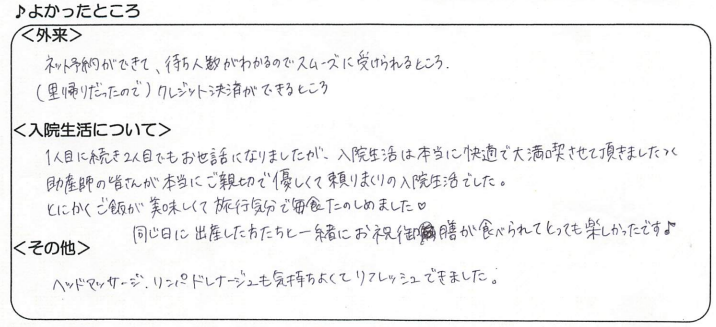 ♪よかったところ
<外来>
ネット予約ができて、待ち人数がわかるのでスムーズに受けられるところ.
(里帰りだったので)クレジット決済ができるところ
<入院生活について>
1人目に続き2人目でもお世話になりましたが、入院生活は本当に快適で大満喫させて頂きました
助産師の皆さんが本当にご親切で優しくて頼りまくりの入院生活でした。
とにかくご飯が美味しくて旅行気分で毎食たのしめました♡
同じ日に出産した方たちと一緒にお祝御膳が食べられてとっても楽しかったです♪
<その他>
ヘッドマッサージ.リンパドレナージュも気持ちよくてリフレッシュできました。